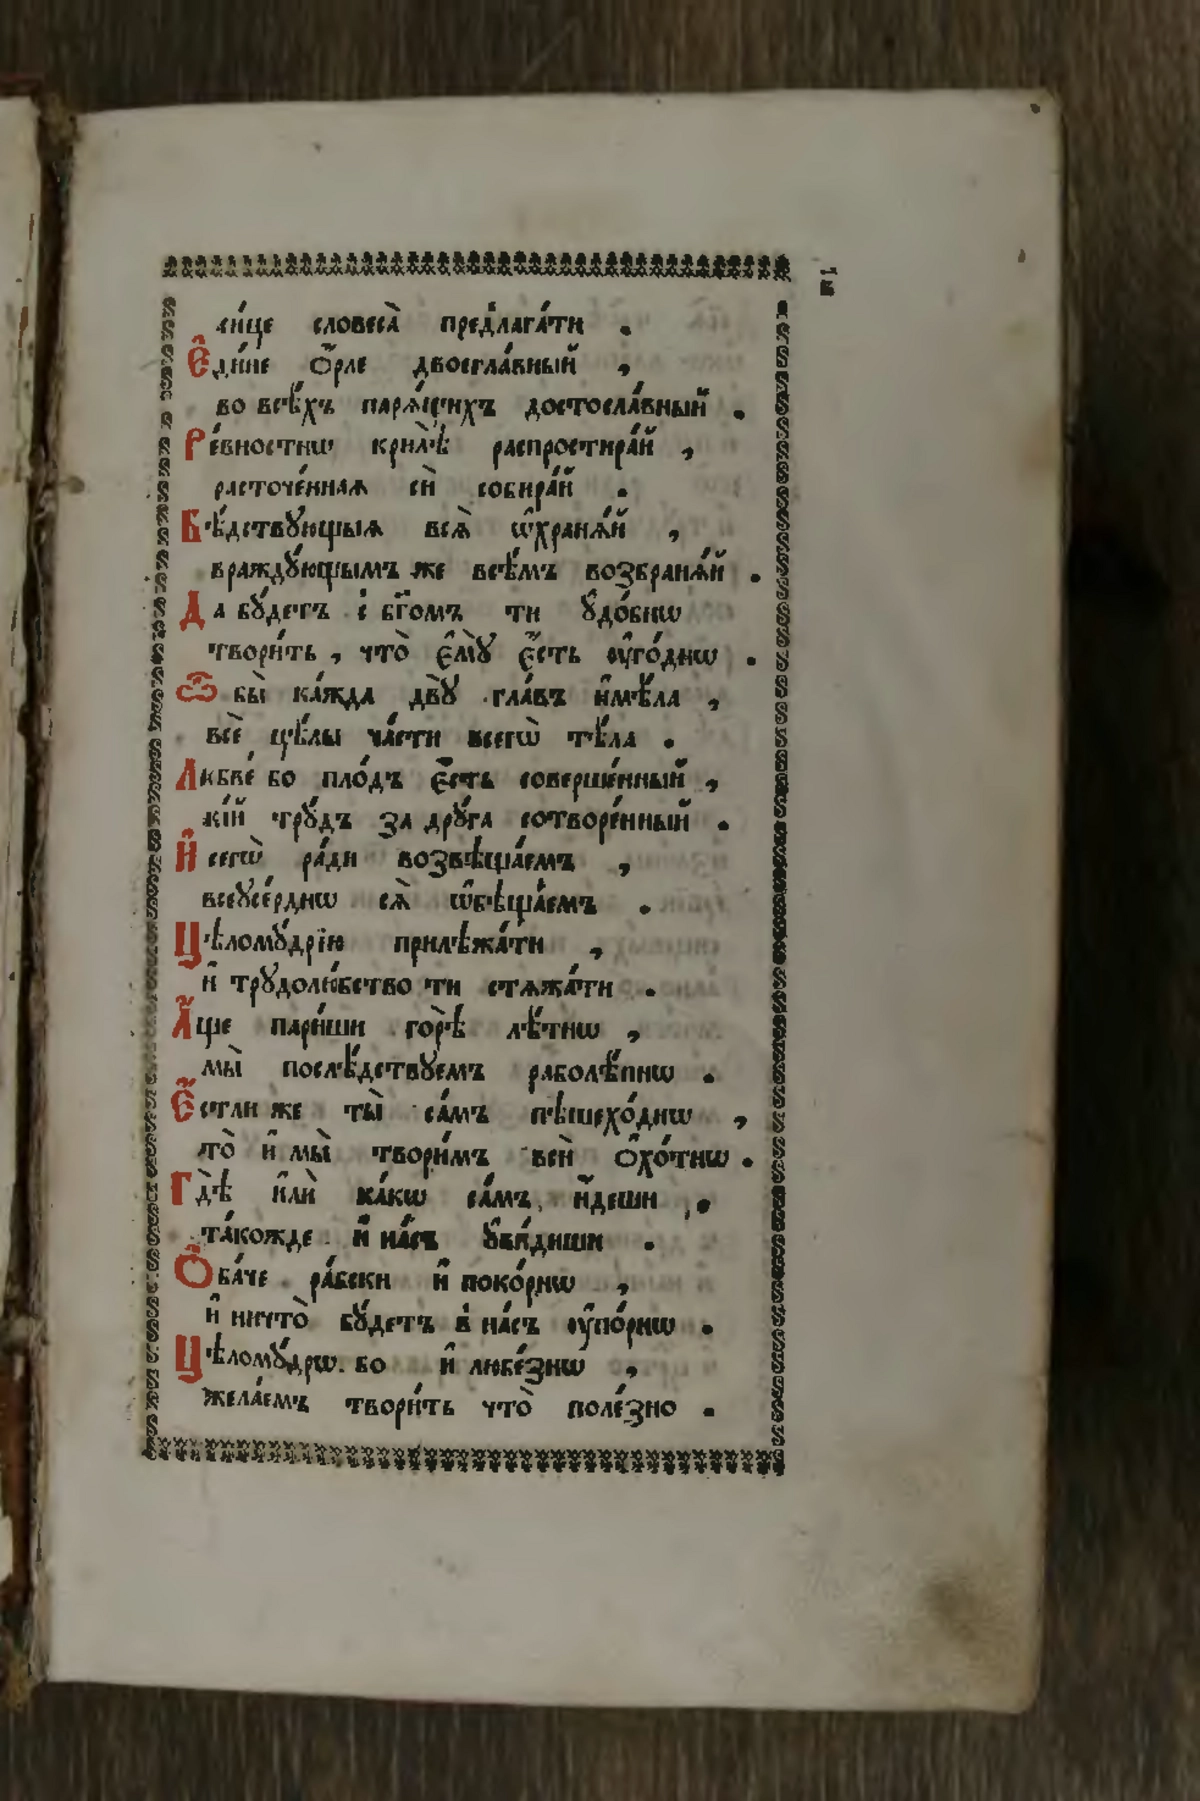 си́це словеса̀ пред̾лага́ти .
Є҆ди́не ѻ҆́рле двоегла́вный ,
во всѣ́хъ парѧ́щихъ достосла́вный .
Ре́вностнѡ крилѣ̀ распростира́й ,
расточе́ннаѧ сѝ собира́й .
Бѣ́дствꙋющыѧ всѧ̑ ѡ҆хранѧ́й ,
враждꙋ́ющымъ же всѣ́мъ возбранѧ́й .
Да бꙋ́детъ с̾ бг҃омъ ти ᲂу҆до́бнѡ
твори́ть , что̀ є҆мꙋ̀ є҆́сть ᲂу҆го́днѡ .
Ѽ бы̀ ка́жда двꙋ̀ гла́въ и҆мѣ́ла ,
всѐ цѣ́лы ча́сти всегѡ̀ тѣ́ла .
Любве́ бо пло́дъ є҆́сть соверше́нный ,
кі́й трꙋ́дъ за дрꙋ́га сотворе́нный .
И҆ сегѡ̀ ра́ди возвѣща́емъ ,
всеꙋсе́рднѡ сѧ̀ ѡ҆бѣща́емъ .
Цѣломꙋ́дрїю прилѣжа́ти ,
и҆ трꙋдолю́бство ти стѧжа́ти .
А҆́ще пари́ши горѣ̀ лѣ́тнѡ ,
мы̀ послѣ́дствꙋемъ раболѣ́пнѡ .
Є҆́стли же ты̀ са́мъ пѣшехо́днѡ ,
то̀ и҆ мы̀ твори́мъ всѝ ѻ҆хо́тнѡ .
Гдѣ̀ и҆лѝ ка́кѡ са́мъ и҆́деши ,
та́кожде и҆ на́съ ᲂу҆ви́диши .
Ѻ҆ба́че ра́бски и҆ поко́рнѡ ,
и҆ ничто̀ бꙋ́детъ в̾ на́съ ᲂу҆по́рнѡ .
Цѣломꙋ́дрѡ бо и҆ любе́знѡ ,
жела́емъ твори́ть что̀ поле́зно .